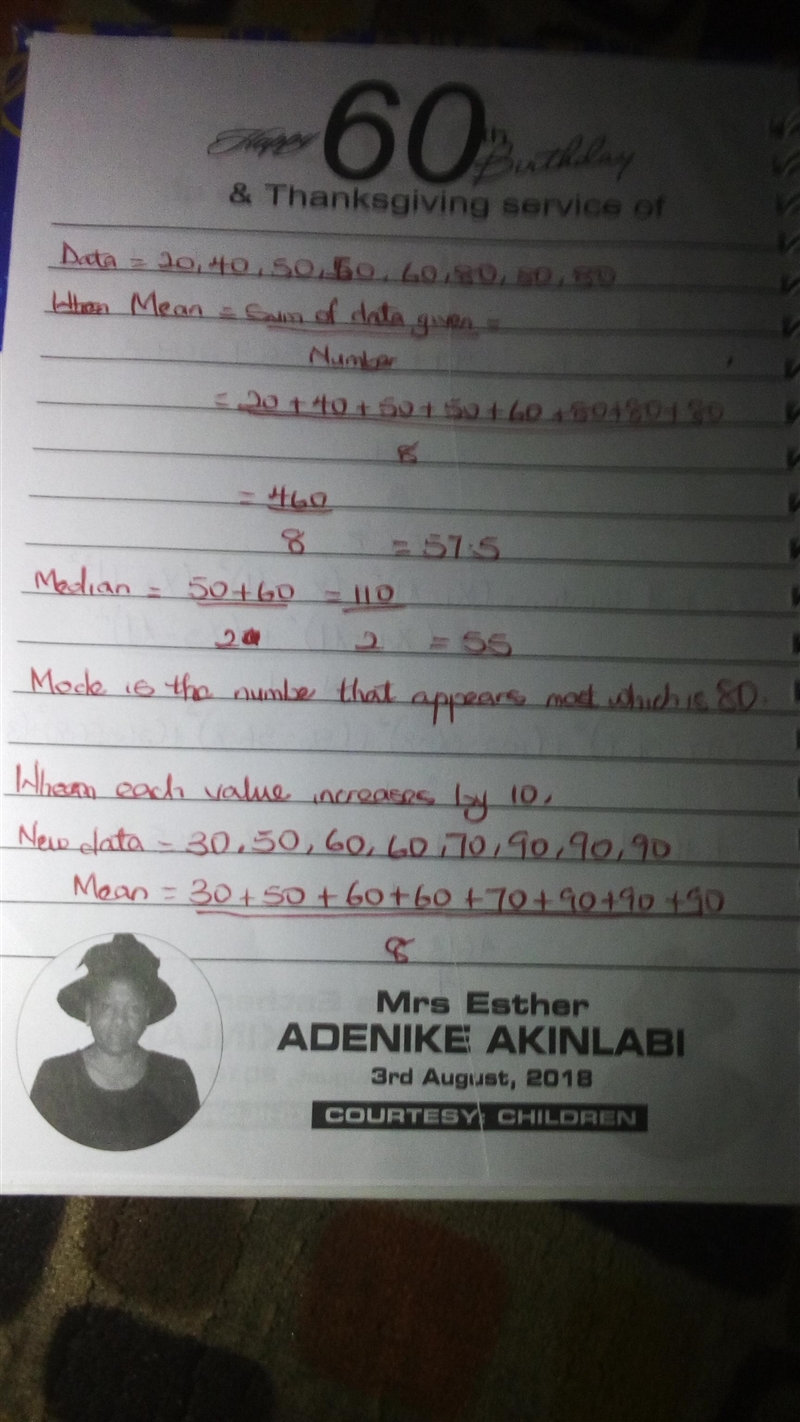 Happy 60th Birthday
& Thanksgiving service of
Data = 20, 40, 50, 50, 60, 80, 80, 80
When Mean = Sum of data given =
Number
= 20 + 40 + 50 + 50 + 60 + 80 + 80 + 80
8
= 460
8 = 57.5
Median = 50+60 = 110
2 2 = 55
Mode is the numbe that appears most which is 80.
When each value increases by 10,
New data = 30, 50, 60, 60, 70, 90, 90, 90
Mean = 30 + 50 + 60 + 60 + 70 + 90 + 90 + 90
8
Mrs Esther
ADENIKE AKINLABI
3rd August, 2018
COURTESY: CHILDREN